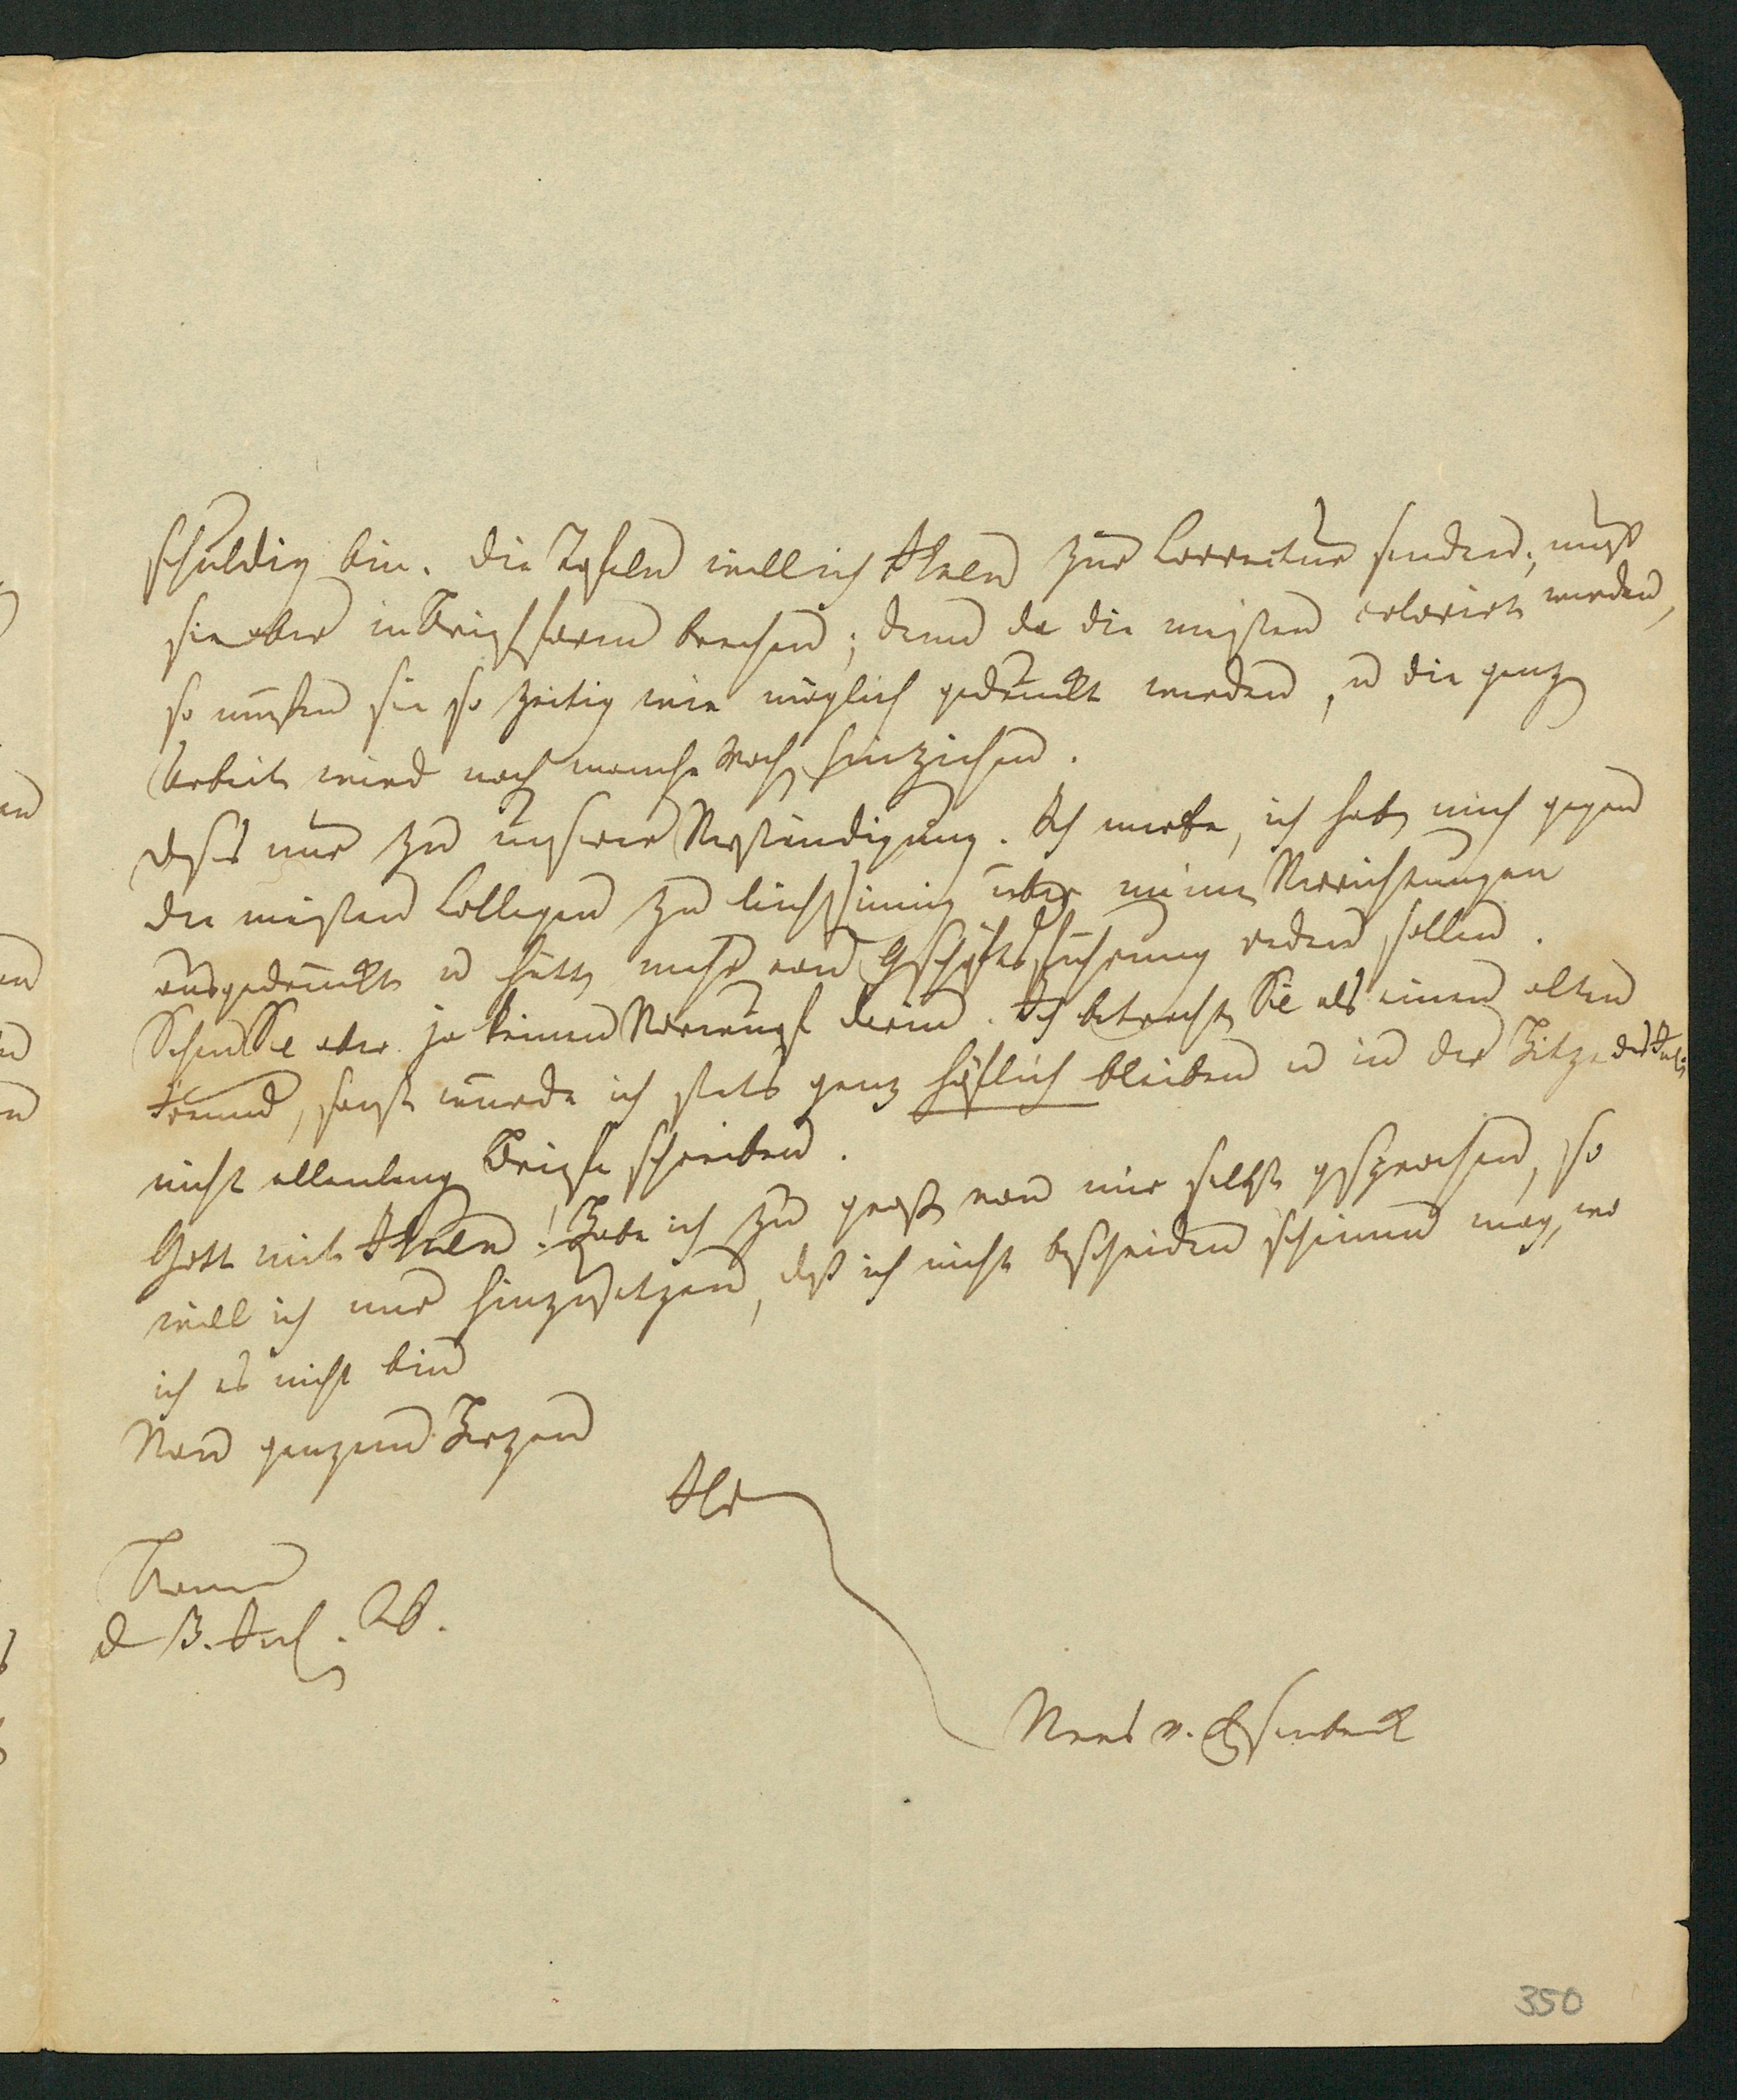 schuldig bin. Die Tafeln will ich Ihnen zur Correctur senden; muß
sie aber in Briefform brechen; denn da die meisten colorirt werden,
so müssen sie so zeitig wie möglich gedruckt werden, u die ganze
Arbeit wird noch manche Woche hinziehen.
Dieß nur zu unserer Verständigung. Ich merke, ich habe mich gegen
die meisten Collegen zu leichtsinnig über meine Verrichtungen
ausgedrückt u hätte mehr von Geschäftsführung reden sollen.
Sehen Sie aber ja keinen Vorwurf darin. Ich betrachte Sie als einen alten
Freund, sonst würde ich stets ganz höflich bleiben u in der Hitze des Juli
nicht ellenlange Briefe schreiben.
Gott mit Ihnen! Habe ich zu groß von mir selbst gesprochen, so
will ich nur hinzusetzen, daß ich nicht bescheiden scheinen mag, wo
ich es nicht bin
Von ganzem Herzen
Ihr
Bonn
d 3. Jul. 26.
Nees v. Esenbeck
350